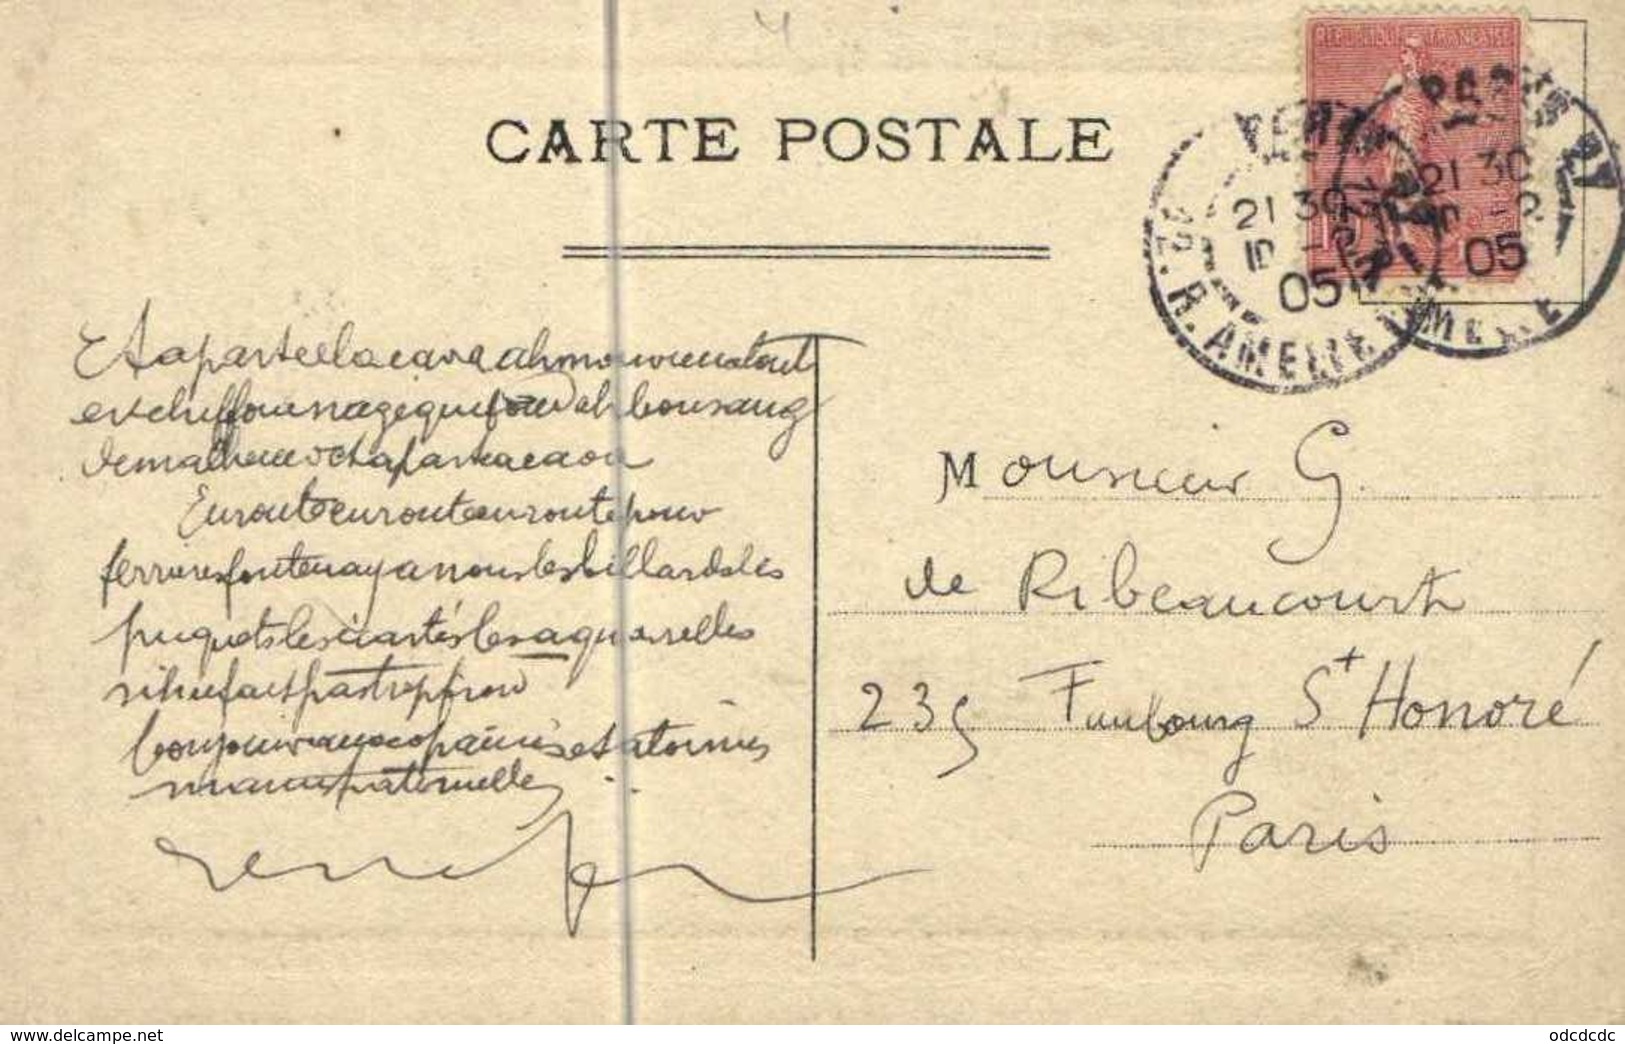 CARTE POSTALE
REPUBLIQUE FRANCAISE
21 30
05
R. AMELIE
21 30
05
Et a part cela ca va ah mon vieux tout
de malheur et a part ca ca va
En route en route en route pour
ferrieres fontenay a nous les billards les
piquets les écartés les aquarelles
si il ne fait pas trop froid
bonjour aux copains et a toi mes
amities fraternelles
Monsieur G.
de Ribeaucourt
235 Faubourg St Honoré
Paris
www.delcampe.net
odcdcdc